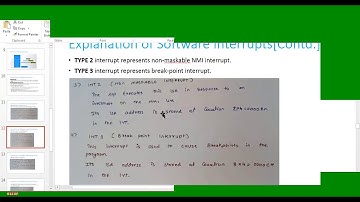 Explanation of Software Interrupts[Contd.]
• TYPE 2 interrupt represents non-maskable NMI interrupt.
• TYPE 3 interrupt represents break-point interrupt.
3) INT 2 (Non maskable interrupt)
The up executes this ISR in response to an
interrupt on the NMI line
Its ISR address is stored at location
in the IVT.
4) INT 3 (Break point interrupt)
This interrupt is used to cause Breakpoints in the
program.
Its ISR address is stored at location
in the IVT.